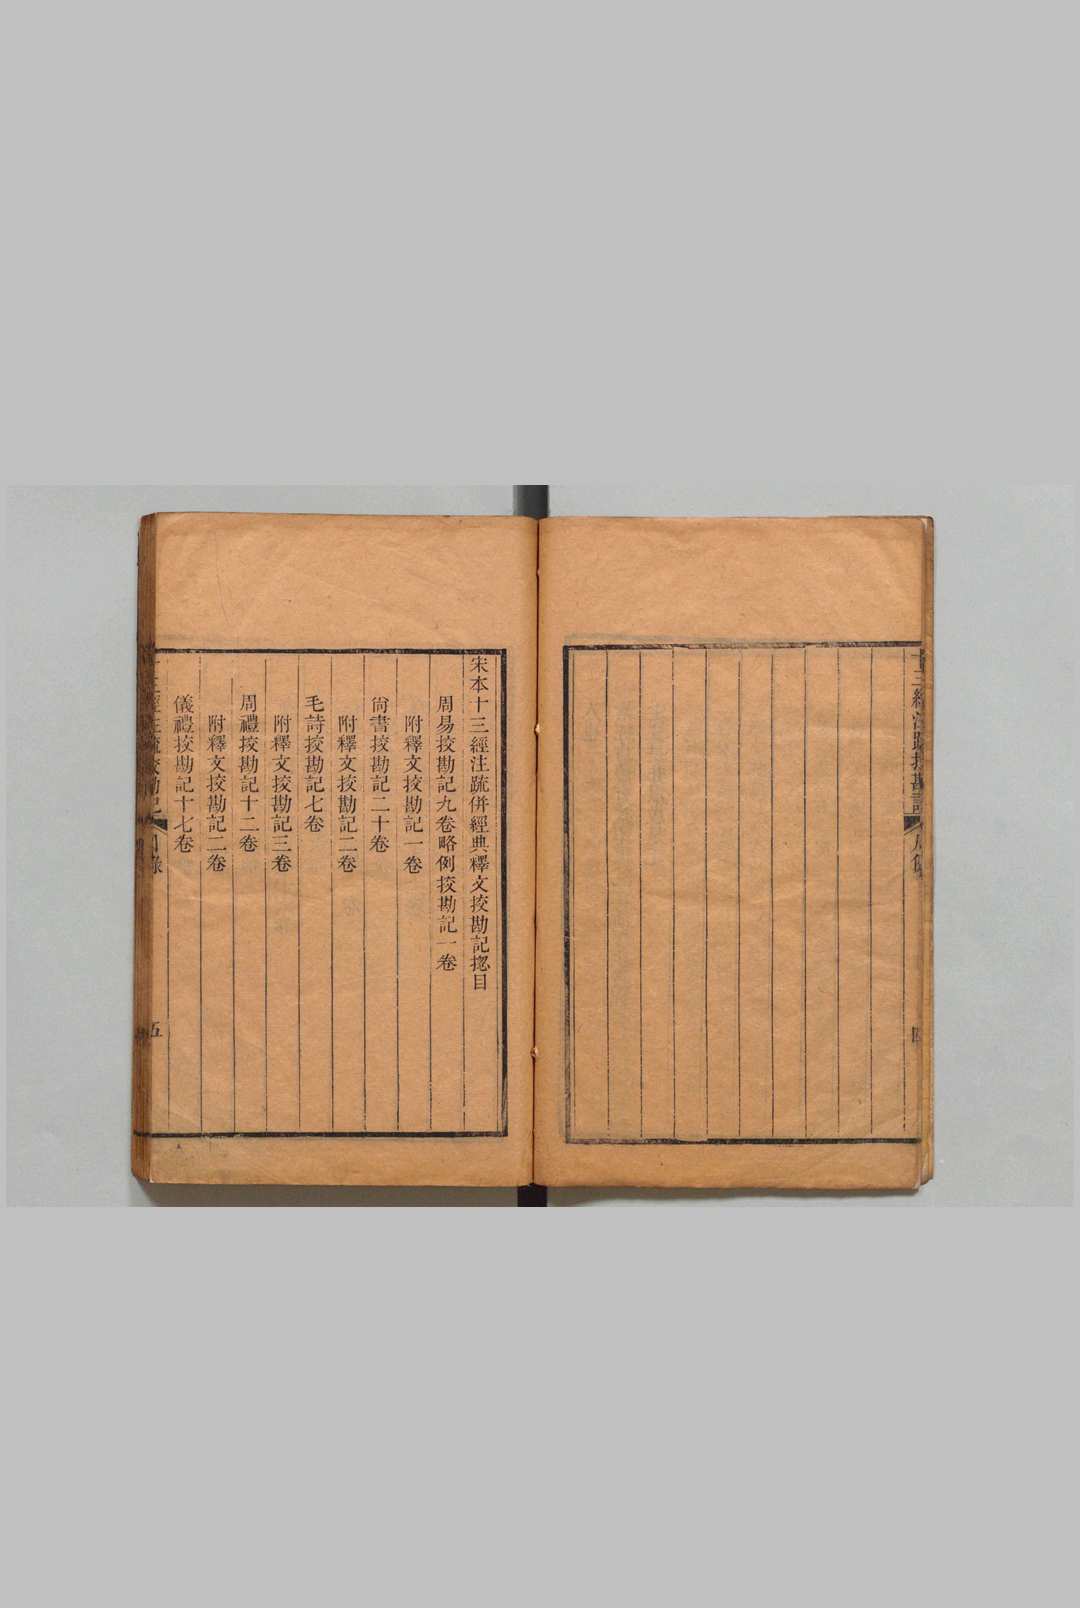 十三經注疏挍勘記
四
宋本十三經注䟽併經典釋文挍勘記揔目
周易挍勘記九卷略例挍勘記一卷
附釋文挍勘記一卷
尙書挍勘記二十卷
附釋文挍勘記二卷
毛詩挍勘記七卷
附釋文挍勘記三卷
周禮挍勘記十二卷
附釋文挍勘記二卷
儀禮挍勘記十七卷
十三經注疏挍勘記
目錄
五